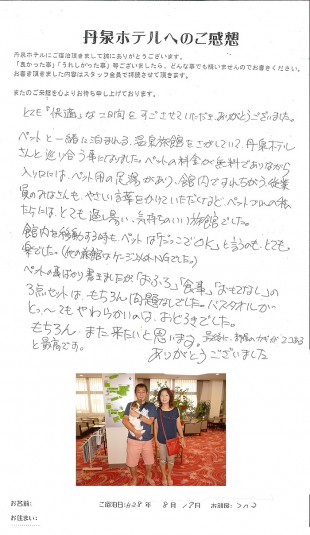 丹泉ホテルへのご感想
丹泉ホテルにご宿泊頂きまして誠にありがとうございます。
「良かった事」「うれしかった事」等ございましたら、どんな事でも構いませんのでお書きください。
お書き頂きました内容はスタッフ全員で拝読させて頂きます。
またのご来館を心よりお待ち申し上げております。
とても「快適」な二日間を、すごさせていただき、ありがとうございました。
ペットと一緒に泊まれる、温泉旅館をさがしていて、丹泉ホテル
さんと巡り合う事になりました。ペットの料金が無料でありながら
入り口には、ペット用の足湯があり、館内ですれちがう従業
員のみなさんも、やさしい言葉をかけていただくなど、ペットづれの私
たちには、とても過し易い、気持ちのいい旅館でした。
館内を移動する時も ペットは「だっこでOK」と言うのも、とても
楽でした。(他の旅館はケージ以外NGでした。)
ペットの事ばかり書きましたが「おふろ」「食事」「おもてなし」の
3点セットは、もちろん問題なしでした。バスタオルが
とっ〜てもやわらかいのは、おどろきでした。
もちろん、また来たいと思います。 最後に、部屋のカギが2コある
と最高です。
ありがとうございました
お名前:
ご宿泊日:H28年 8月 17日
お部屋:
お住まい: